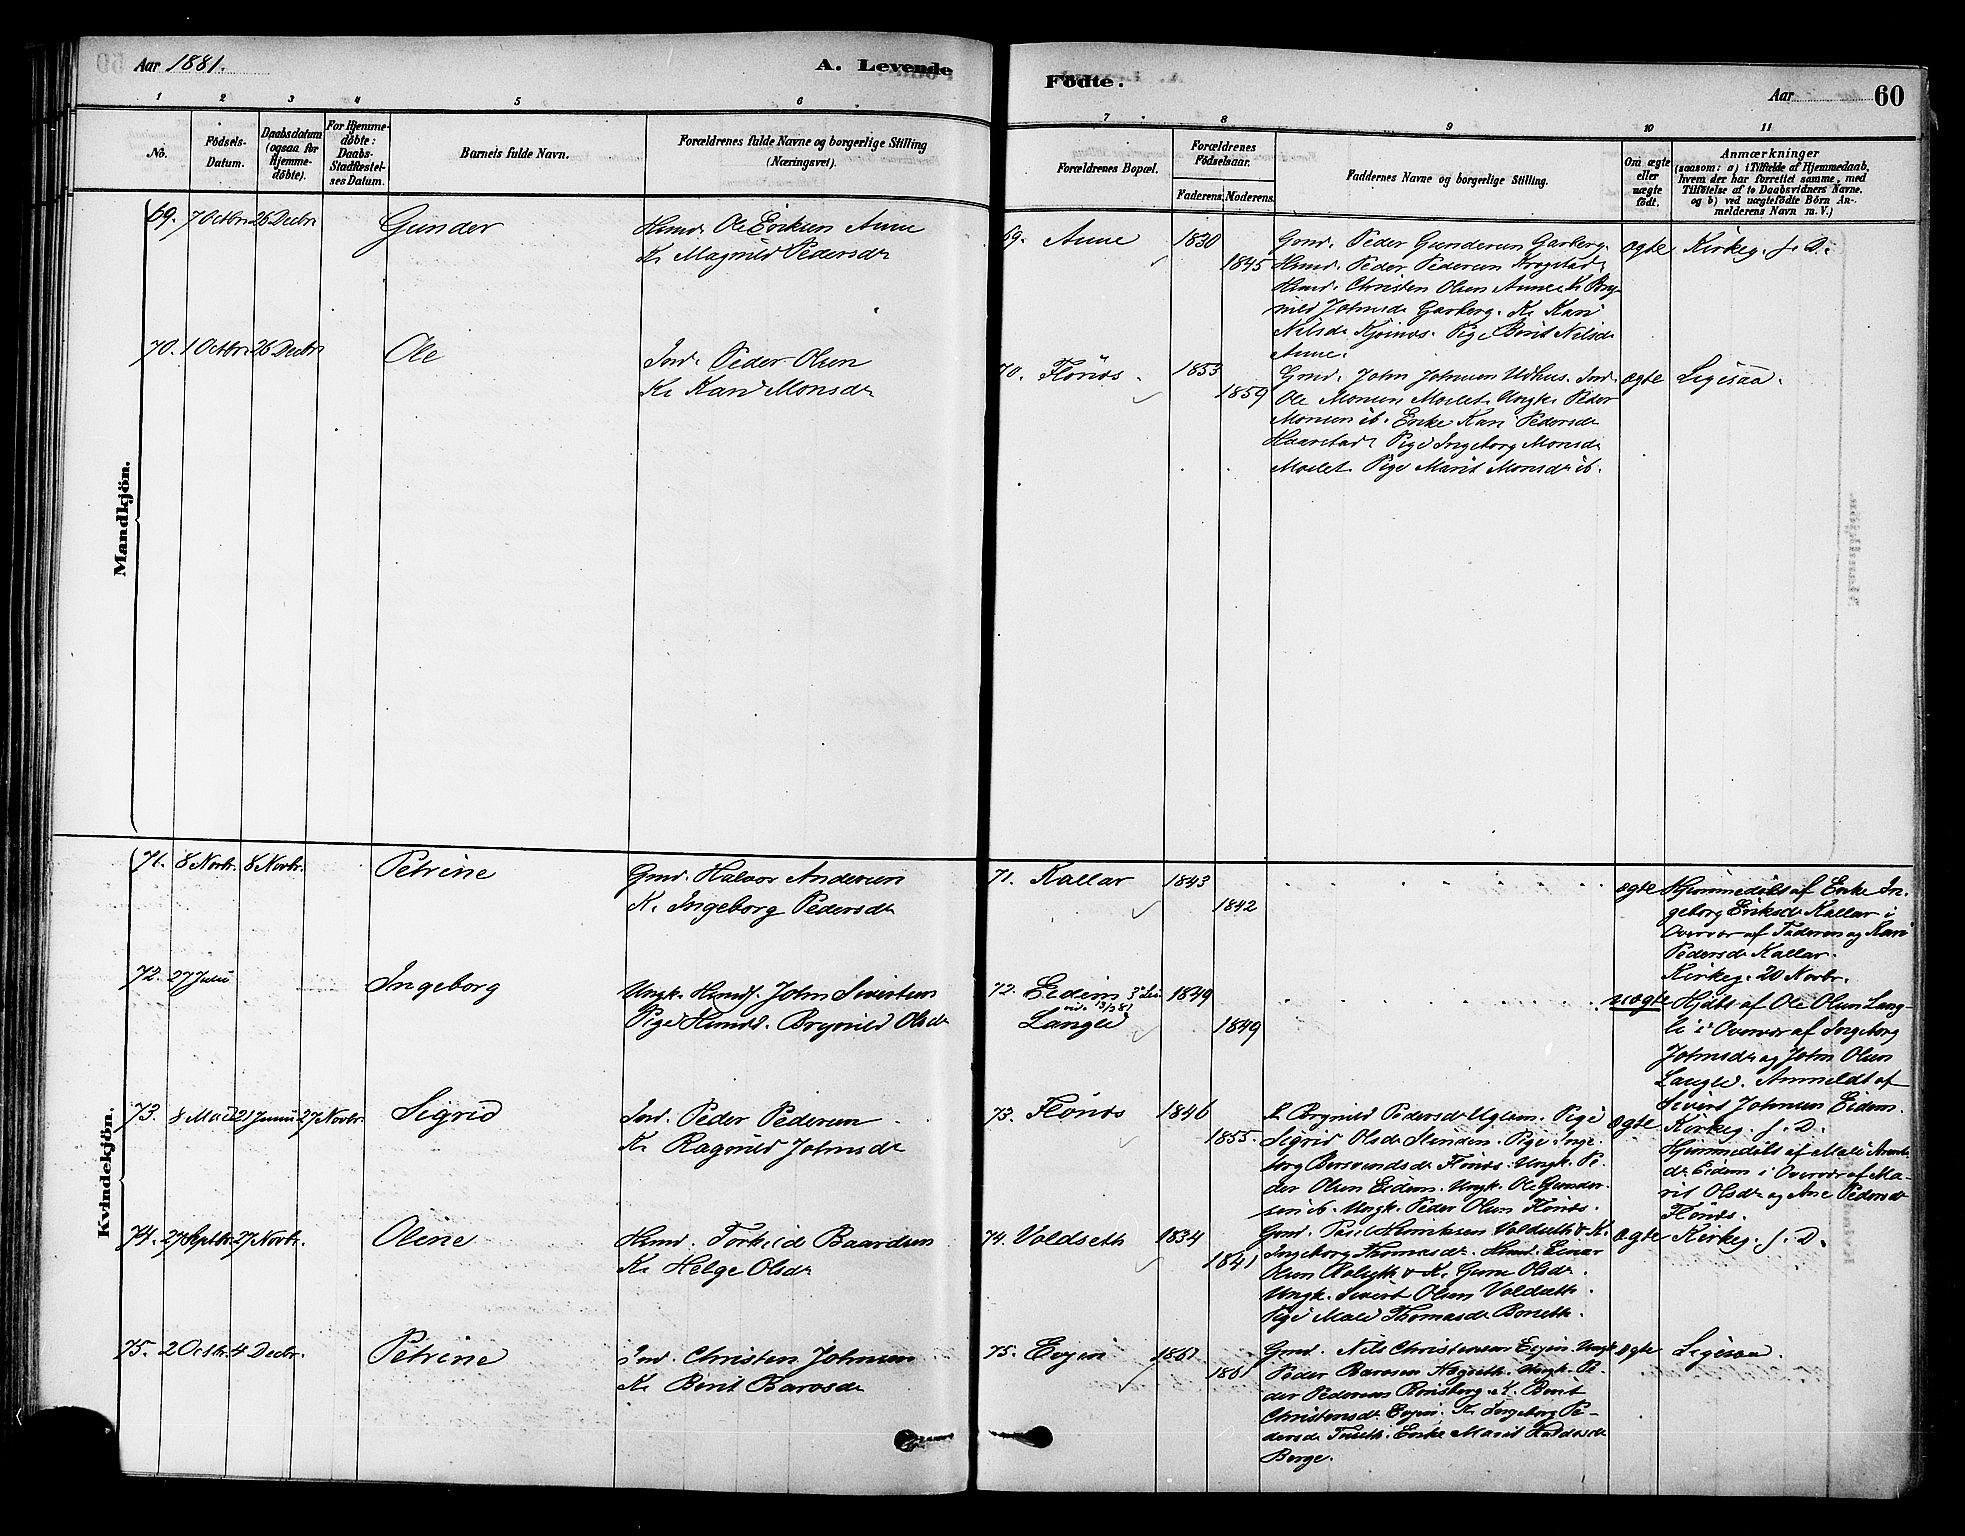 Aar 1881.
A. Levende
Födte.
Aar 60
1 2 3 4 5 6
7 8 9 10 11
No.
Födsels-
Datum.
Daabsdatum
(ogsaa for
Hjemme-
döbte).
For Hjemme-
döbte:
Daabs-
Stadfæstel-
ses Datum.
Barnets fulde Navn.
Forældrenes fulde Navne og borgerlige Stilling
(Næringsvei).
Forældrenes Bopæl.
Forældrenes
Födselsaar.
Faderens. Moderens.
Faddernes Navne og borgerlige Stilling.
Om ægte
eller
uægte
födt.
Anmærkninger
(saasom: a) i Tilfælde af Hjemmedaab,
hvem der har forrettet samme, med
Tilföielse af to Daabsvidners Navne.
og b) ved uægtefödte Börn An-
melderens Navn m. V.)
Mandkjön.
69. 7 Octbr 26 Decbr Gunder
Hmd. Ole Eriksen Aune
K. Magnild Pedersdr
69. Aune 1830
1845
Gmd. Peder Gundersen Garberg.
Hmd. Peder Pedersen Krogstad
Hmd. Christen Olsen Aune K. Bry-
nild Johnsdr Garberg. K. Kari
Nilsdr Kjöinås. Pige Berit Nilsdr
Aune.
ægte Kirkeg. f. D.
70. 1 Octbr 26 Decbr Ole
Ind. Peder Olsen
K. Kari Monsdr
70. Flönæs. 1853
1859
Gmd. John Johnsen Udhus. Ind.
Ole Monsen Moslet. Ungk. Peder
Monsen ib. Enke Kari Pedersdr
Haarstad. Pige Ingeborg Monsdr
Moslet. Pige Marit Monsdr ib.
ægte Ligesaa.
Kvindekjön.
71. 8 Novbr. 8 Novbr. Petrine
Gmd. Halvor Andersen
K. Ingeborg Pedersdr
71. Kallar 1843
1842
ægte Hjemmedöbt af Enke In-
geborg Eriksdr Kallar i
Overvær af Faderen og Kari
Pedersdr Kallar.
Kirkeg. 20 Novbr.
72. 27 Juni Ingeborg
Ungk. Hmdf. John Sivertsen
Pige Hmdd. Brynild Olsdr
72. Eidem 1849
Langli 1849
uægte Hjdöbt af Ole Olsen Lang-
li i Overvær af Ingeborg
Johnsdr og John Olsen
Langli. Anmeldt af
Sivert Johnsen Eidem.
73. 8 Mai 21 Juni 27 Novbr. Sigrid
Ind. Peder Pedersen
K. Ragnild Johnsdr
73. Flönæs 1846
1855.
K. Brynild Pedersdr Uglem. Pige
Sigrid Olsdr Stenden. Pige Inge-
borg Bersvendsdr Flönæs. Ungk. Pe-
der Olsen Eidem. Ungk. Ole Gunder-
sen ib. Ungk. Peder Olsen Flönæs.
ægte Kirkeg. f. D.
Hjemmedöbt af Mali Arnts-
dr Eidem i Overvær af Ma-
rit Olsdr og Ane Pedersdr
Flönæs.
74. 27 Septbr. 27 Novbr. Oline
Hmd. Torkild Baardsen
K. Helge Olsdr
74. Voldseth 1834
1841
Gmd. Paul Henriksen Voldseth & K.
Ingeborg Thomasdr. Hmd. Einar
Olsen & K. Guru Olsdr.
Ungk. Sivert Olsen Voldseth.
Pige Mali Thomasdr
ægte Kirkeg. f. D.
75. 2 Octbr. 4 Decbr. Petrine
Ind. Christen Johnsen
K. Berit Barosdr
75. Evjen
1861
Gmd. Nils Christensen Evjen. Ungk.
Peder Barosen Ungk. Pe-
der Pedersen K. Berit
Christensdr Evjen. K. Ingeborg Pe-
dersdr Enke Marit
Berge.
ægte Ligesaa.